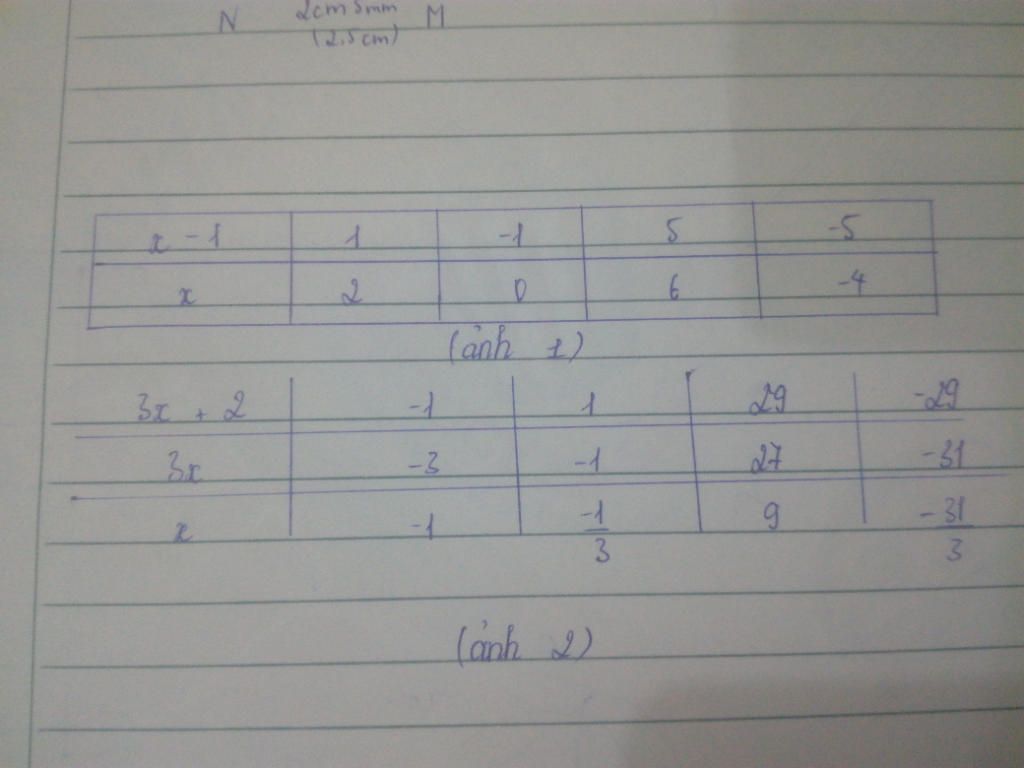 N 2cm 5mm M
(2,5cm)
x - 1 1 -1 5 -5
x 2 0 6 -4
(ảnh 1)
3x + 2 -1 1 29 -29
3x -3 -1 27 -31
x -1 -1/3 9 -31/3
(ảnh 2)